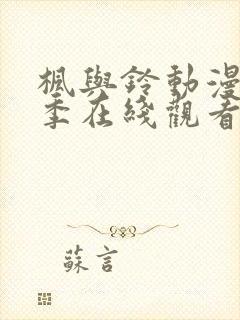 楓與鈴動漫
季在綫觀看
蘇言